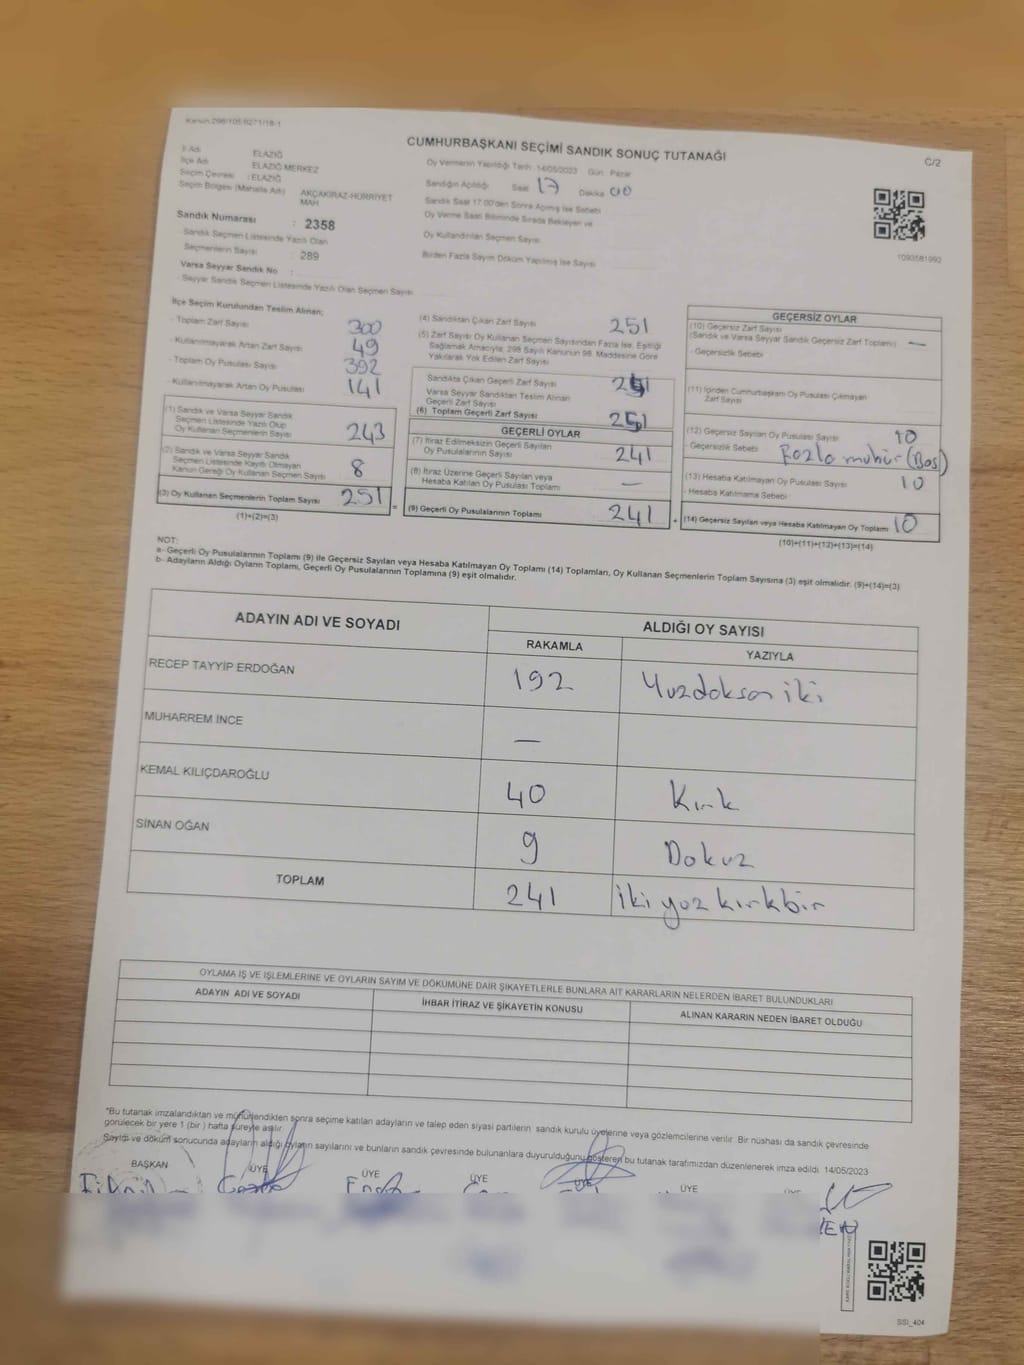 Kanun:298/105,6271/18-1
CUMHURBAŞKANI SEÇİMİ SANDIK SONUÇ TUTANAĞI
C/2
İl Adı ELAZIĞ
İlçe Adı ELAZIĞ MERKEZ
Seçim Çevresi : ELAZIĞ
Seçim Bölgesi (Mahalle Adı) AKÇAKİRAZ-HÜRRİYET MAH
Sandık Numarası : 2358
Sandık Seçmen Listesinde Yazılı Olan
Seçmenlerin Sayısı : 289
Varsa Seyyar Sandık No :
- Seyyar Sandık Seçmen Listesinde Yazılı Olan Seçmen Sayısı
Oy Vermenin Yapıldığı Tarih 14/05/2023 Gün Pazar
Sandığın Açıldığı Saat 17 Dakika 00
Sandık Saat 17:00'den Sonra Açılmış İse Sebebi
Oy Verme Saati Bitiminde Sırada Bekleyen ve
Oy Kullandırılan Seçmen Sayısı
Birden Fazla Sayım Döküm Yapılmış İse Sayısı
1093581992
İlçe Seçim Kurulundan Teslim Alınan;
- Toplam Zarf Sayısı 300
- Kullanılmayarak Artan Zarf Sayısı 49
- Toplam Oy Pusulası Sayısı 392
- Kullanılmayarak Artan Oy Pusulası 141
(1) Sandık ve Varsa Seyyar Sandık
Seçmen Listesinde Yazılı Olup
Oy Kullanan Seçmenlerin Sayısı 243
(2) Sandık ve Varsa Seyyar Sandık
Seçmen Listesinde Kayıtlı Olmayan
Kanun Gereği Oy Kullanan Seçmen Sayısı 8
(3) Oy Kullanan Seçmenlerin Toplam Sayısı 251
(1)+(2)=(3)
(4) Sandıktan Çıkan Zarf Sayısı 251
(5) Zarf Sayısı Oy Kullanan Seçmen Sayısından Fazla İse, Eşitliği
Sağlamak Amacıyla; 298 Sayılı Kanunun 98. Maddesine Göre
Yakılarak Yok Edilen Zarf Sayısı
Sandıkta Çıkan Geçerli Zarf Sayısı 251
Varsa Seyyar Sandıktan Teslim Alınan
Geçerli Zarf Sayısı
(6) Toplam Geçerli Zarf Sayısı 251
GEÇERLİ OYLAR
(7) İtiraz Edilmeksizin Geçerli Sayılan
Oy Pusulalarının Sayısı 241
(8) İtiraz Üzerine Geçerli Sayılan veya
Hesaba Katılan Oy Pusulası Toplamı —
= (9) Geçerli Oy Pusulalarının Toplamı 241
GEÇERSİZ OYLAR
(10) Geçersiz Zarf Sayısı
(Sandık ve Varsa Seyyar Sandık Geçersiz Zarf Toplamı) —
- Geçersizlik Sebebi
(11) İçinden Cumhurbaşkanı Oy Pusulası Çıkmayan
Zarf Sayısı
(12) Geçersiz Sayılan Oy Pusulası Sayısı 10
- Geçersizlik Sebebi Fazla mühür (Boş)
(13) Hesaba Katılmayan Oy Pusulası Sayısı 10
- Hesaba Katılmama Sebebi
+ (14) Geçersiz Sayılan veya Hesaba Katılmayan Oy Toplamı 10
(10)+(11)+(12)+(13)=(14)
NOT:
a- Geçerli Oy Pusulalarının Toplamı (9) ile Geçersiz Sayılan veya Hesaba Katılmayan Oy Toplamı (14) Toplamları, Oy Kullanan Seçmenlerin Toplam Sayısına (3) eşit olmalıdır. (9)+(14)=(3)
b- Adayların Aldığı Oyların Toplamı, Geçerli Oy Pusulalarının Toplamına (9) eşit olmalıdır.
ADAYIN ADI VE SOYADI ALDIĞI OY SAYISI
RAKAMLA YAZIYLA
RECEP TAYYİP ERDOĞAN 192 Yuzdoksan iki
MUHARREM İNCE —
KEMAL KILIÇDAROĞLU 40 Kırk
SİNAN OĞAN 9 Dokuz
TOPLAM 241 iki yüz kırkbir
OYLAMA İŞ VE İŞLEMLERİNE VE OYLARIN SAYIM VE DÖKÜMÜNE DAİR ŞİKAYETLERLE BUNLARA AİT KARARLARIN NELERDEN İBARET BULUNDUKLARI
ADAYIN ADI VE SOYADI İHBAR İTİRAZ VE ŞİKAYETİN KONUSU ALINAN KARARIN NEDEN İBARET OLDUĞU
*Bu tutanak imzalandıktan ve mühürlendikten sonra seçime katılan adayların ve talep eden siyasi partilerin sandık kurulu üyelerine veya gözlemcilerine verilir. Bir nüshası da sandık çevresinde
görülecek bir yere 1 (bir ) hafta süreyle asılır.
Sayım ve döküm sonucunda adayların aldığı oyların sayılarını ve bunların sandık çevresinde bulunanlara duyurulduğunu gösteren bu tutanak tarafımızdan düzenlenerek imza edildi. 14/05/2023
BAŞKAN ÜYE ÜYE ÜYE ÜYE ÜYE ÜYE
SSI_404